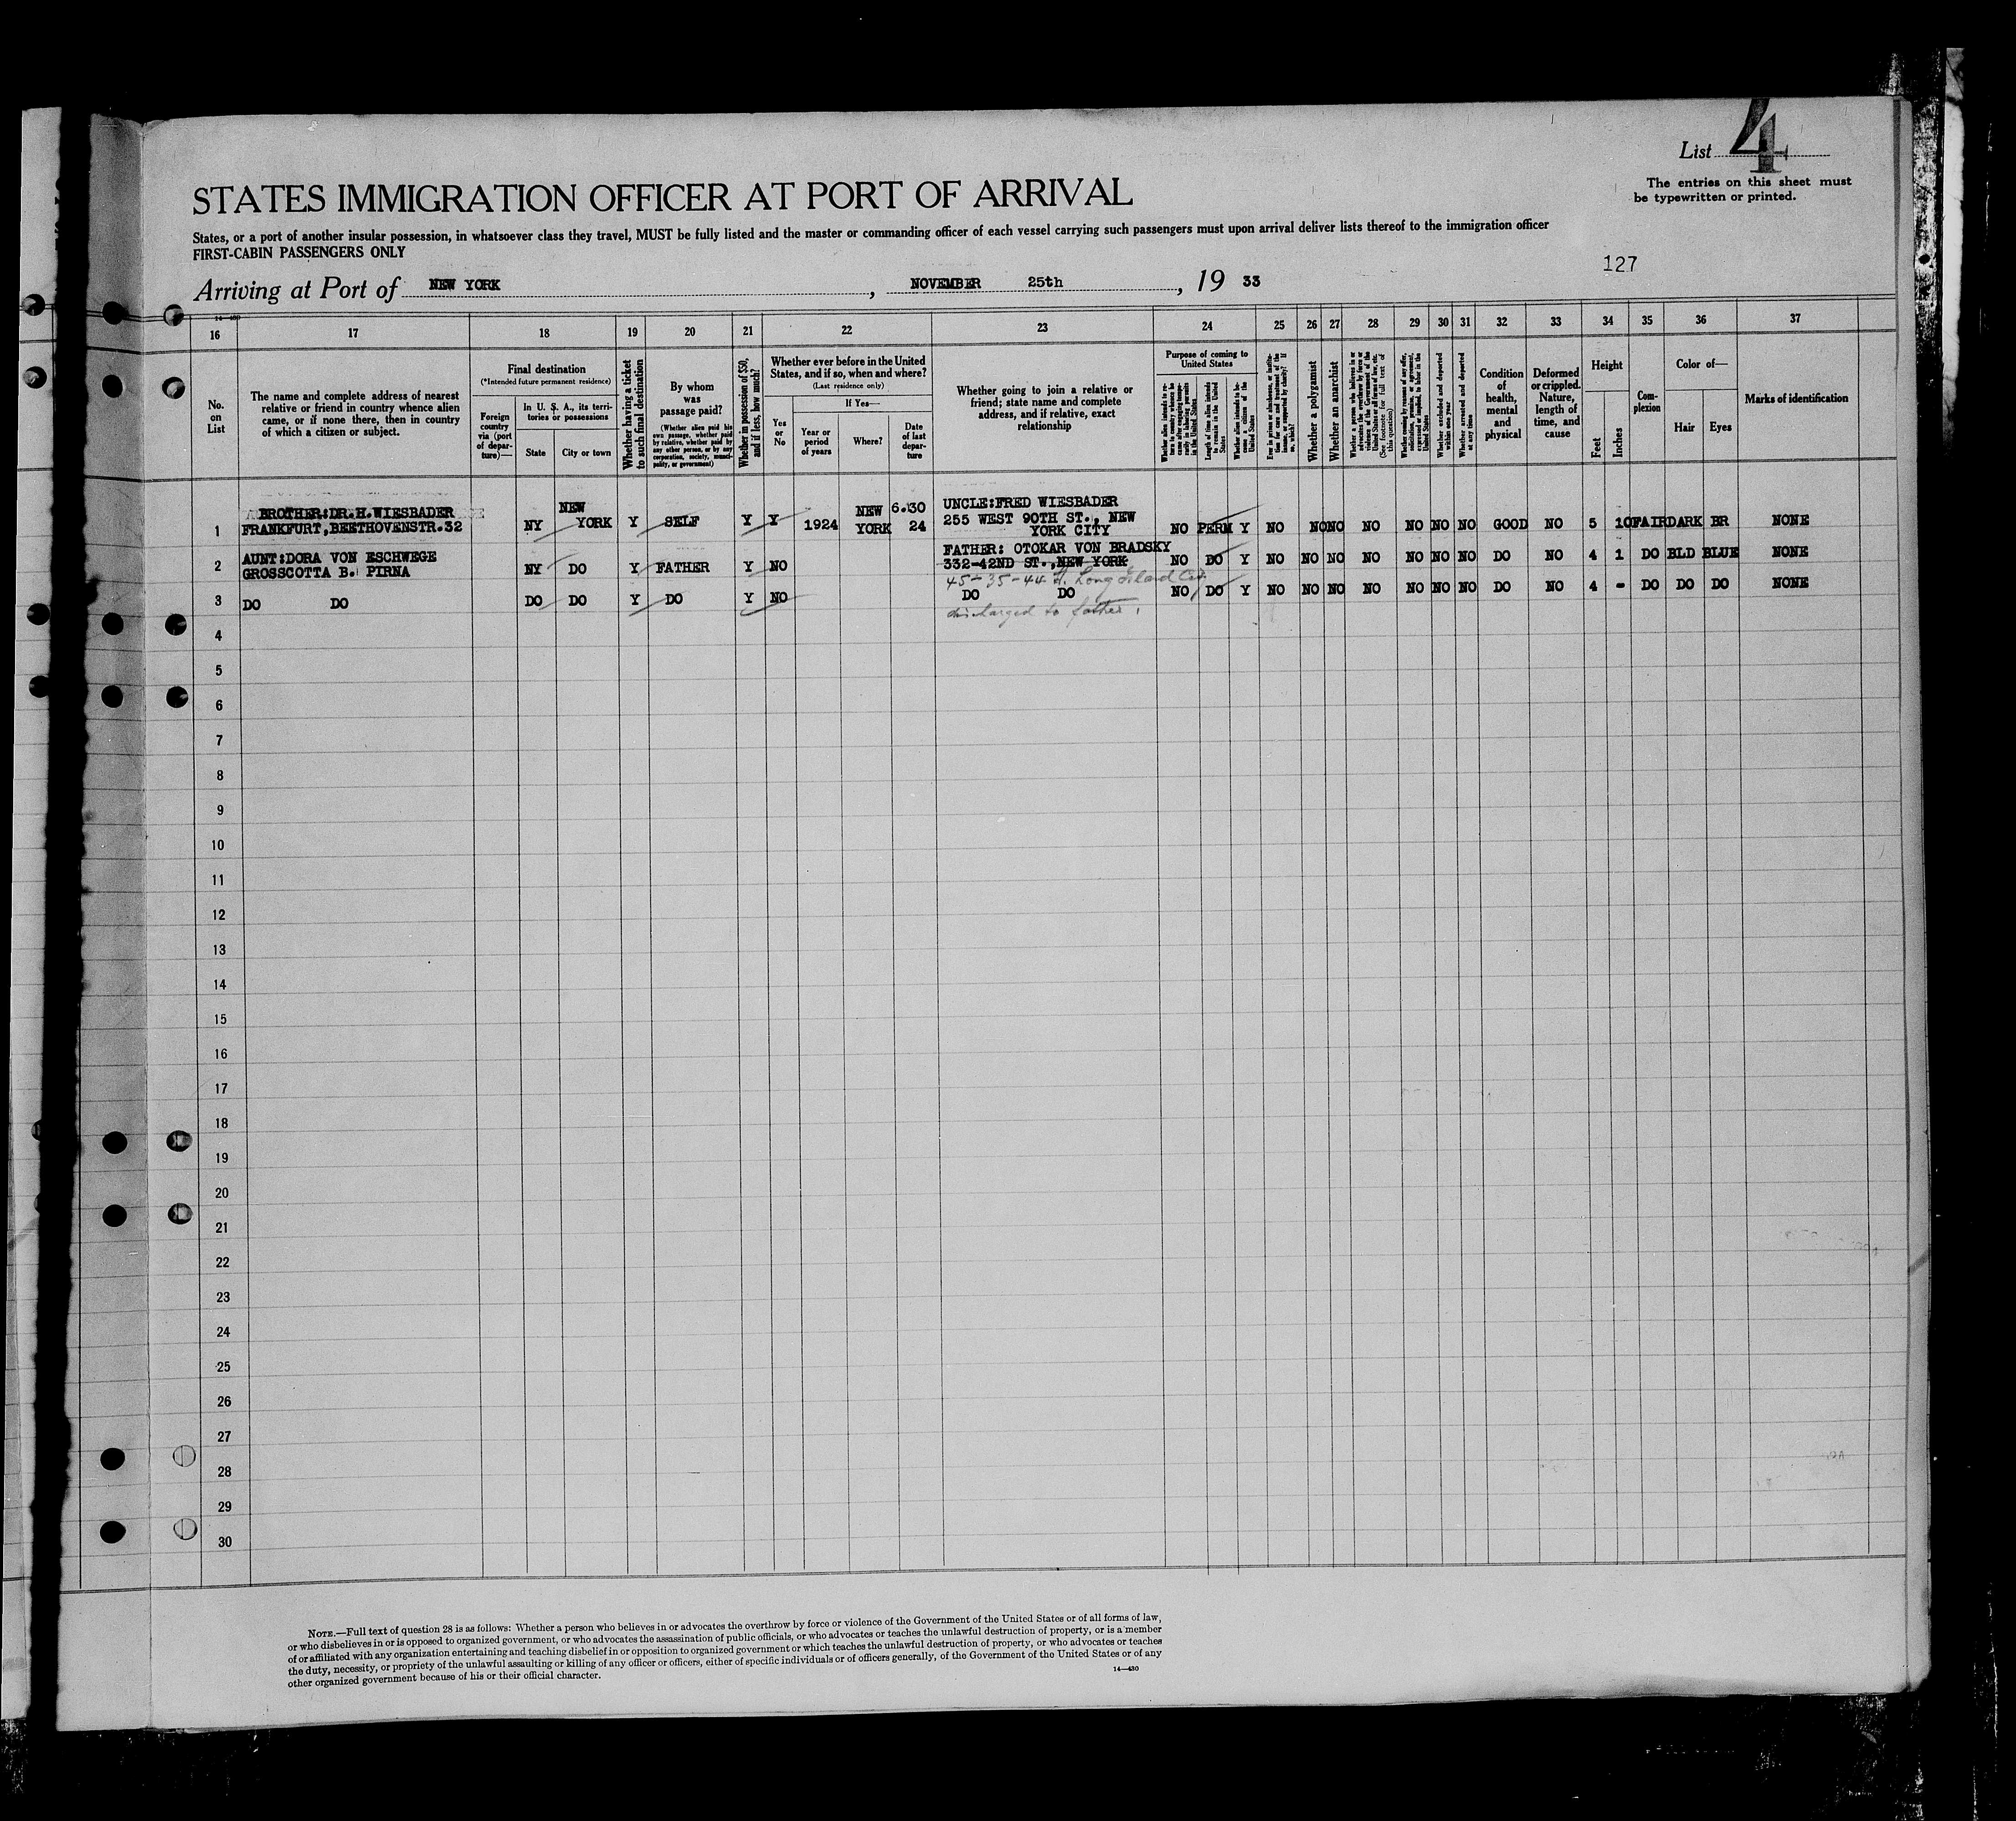 List 4
The entries on this sheet must
be typewritten or printed.
STATES IMMIGRATION OFFICER AT PORT OF ARRIVAL
States, or a port of another insular possession, in whatsoever class they travel, MUST be fully listed and the master or commanding officer of each vessel carrying such passengers must upon arrival deliver lists thereof to the immigration officer
FIRST-CABIN PASSENGERS ONLY
127
Arriving at Port of NEW YORK, NOVEMBER 25th, 19 33
14—430
16 17 18 19 20 21 22 23 24 25 26 27 28 29 30 31 32 33 34 35 36 37
No.
on
List
The name and complete address of nearest
relative or friend in country whence alien
came, or if none there, then in country
of which a citizen or subject.
Final destination
(*Intended future permanent residence)
Foreign
country
via (port
of depar-
ture)—
In U. S. A., its terri-
tories or possessions
State
City or town
Whether having a ticket
to such final destination
By whom
was
passage paid?
(Whether alien paid his
own passage, whether paid
by relative, whether paid by
any other person, or by any
corporation, society, munici-
pality, or government)
Whether in possession of $50,
and if less, how much?
Whether ever before in the United
States, and if so, when and where?
(Last residence only)
Yes
or
No
If Yes—
Year or
period
of years
Where?
Date
of last
depar-
ture
Whether going to join a relative or
friend; state name and complete
address, and if relative, exact
relationship
Purpose of coming to
United States
Length of time alien intends
to remain in the United
States
Whether alien intends to be-
come a citizen of the
United States
Whether a polygamist
Whether an anarchist
(See footnote for full text of
this question)
Whether excluded and deported
within one year
Whether arrested and deported
at any time
Condition
of
health,
mental
and
physical
Deformed
or crippled.
Nature,
length of
time, and
cause
Height
Feet
Inches
Com-
plexion
Color of—
Hair
Eyes
Marks of identification
1 BROTHER:DR.H.WIESBADER
FRANKFURT,BEETHOVENSTR.32 NY NEW YORK Y SELF Y Y 1924 NEW YORK 6.30 24 UNCLE:FRED WIESBADER
255 WEST 90TH ST., NEW
YORK CITY NO PERM Y NO NO NO NO NO NO NO GOOD NO 5 10 FAIR DARK BR NONE
2 AUNT:DORA VON ESCHWEGE
GROSSCOTTA B. PIRNA NY DO Y FATHER Y NO FATHER: OTOKAR VON BRADSKY
332-42ND ST.,NEW YORK NO DO Y NO NO NO NO NO NO NO DO NO 4 1 DO BLD BLUE NONE
45-35-44 St. Long Island City
3 DO DO DO DO Y DO Y NO DO DO NO DO Y NO NO NO NO NO NO NO DO NO 4 - DO DO DO NONE
discharged to father.
4
5
6
7
8
9
10
11
12
13
14
15
16
17
18
19
20
21
22
23
24
25
26
27
28
29
30
NOTE.—Full text of question 28 is as follows: Whether a person who believes in or advocates the overthrow by force or violence of the Government of the United States or of all forms of law,
or who disbelieves in or is opposed to organized government, or who advocates the assassination of public officials, or who advocates or teaches the unlawful destruction of property, or is a member
of or affiliated with any organization entertaining and teaching disbelief in or opposition to organized government or which teaches the unlawful destruction of property, or who advocates or teaches
the duty, necessity, or propriety of the unlawful assaulting or killing of any officer or officers, either of specific individuals or of officers generally, of the Government of the United States or of any
other organized government because of his or their official character.
14—430